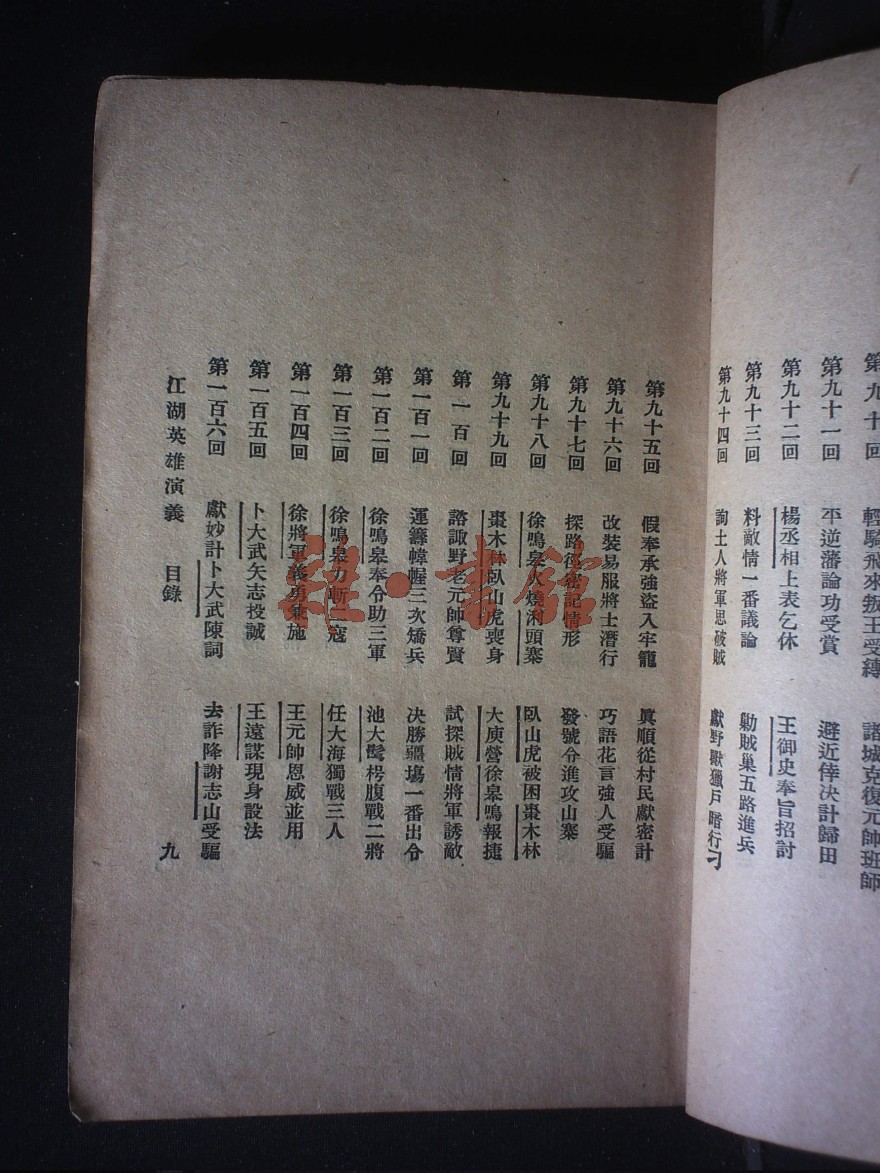 第九十回　輕騎飛來叛王受縛　諸城克復元帥班師
第九十一回　平逆藩論功受賞　避近倖決計歸田
第九十二回　楊丞相上表乞休　王御史奉旨招討
第九十三回　料敵情一番議論　勦賊巢五路進兵
第九十四回　詢土人將軍思破賊　獻野獸獵戶暗行刁
第九十五回　假奉承強盜入牢籠　眞順從村民獻密計
第九十六回　改裝易服將士潛行　巧語花言強人受騙
第九十七回　探路徑密記情形　發號令進攻山寨
第九十八回　徐鳴皋火燒浰頭寨　臥山虎被困棗木林
第九十九回　棗木林臥山虎喪身　大庾營徐皋鳴報捷
第一百回　諮諏野老元帥尊賢　試探賊情將軍誘敵
第一百一回　運籌幃幄三次矯兵　決勝疆場一番出令
第一百二回　徐鳴皋奉令助三軍　池大鬢枵腹戰二將
第一百三回　徐鳴皋力斬二寇　任大海獨戰三人
第一百四回　徐將軍義勇兼施　王元帥恩威並用
第一百五回　卜大武矢志投誠　王遠謀現身設法
第一百六回　獻妙計卜大武陳詞　去詐降謝志山受騙
江湖英雄演義　目錄　九
雜·書館